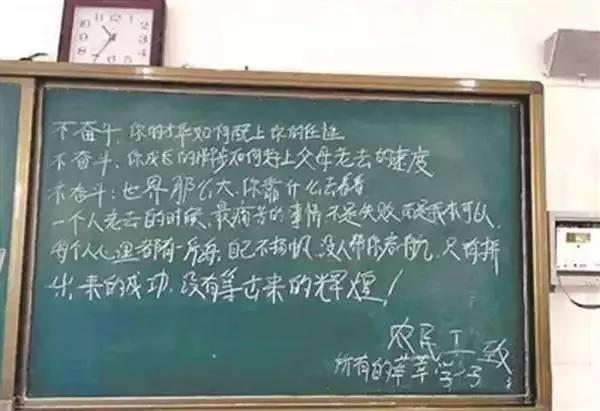 不奋斗,你的才华如何配上你的任性
不奋斗,你成长的脚步如何赶上父母老去的速度
不奋斗:世界那么大,你靠什么去看看
一个人老去的时候,最痛苦的事情不是失败,而是我本可以,
每个人心里都有一片海,自己不扬帆,没人帮你启航,只有拼
出来的成功,没有等出来的辉煌!
农民工致
所有的莘莘学子